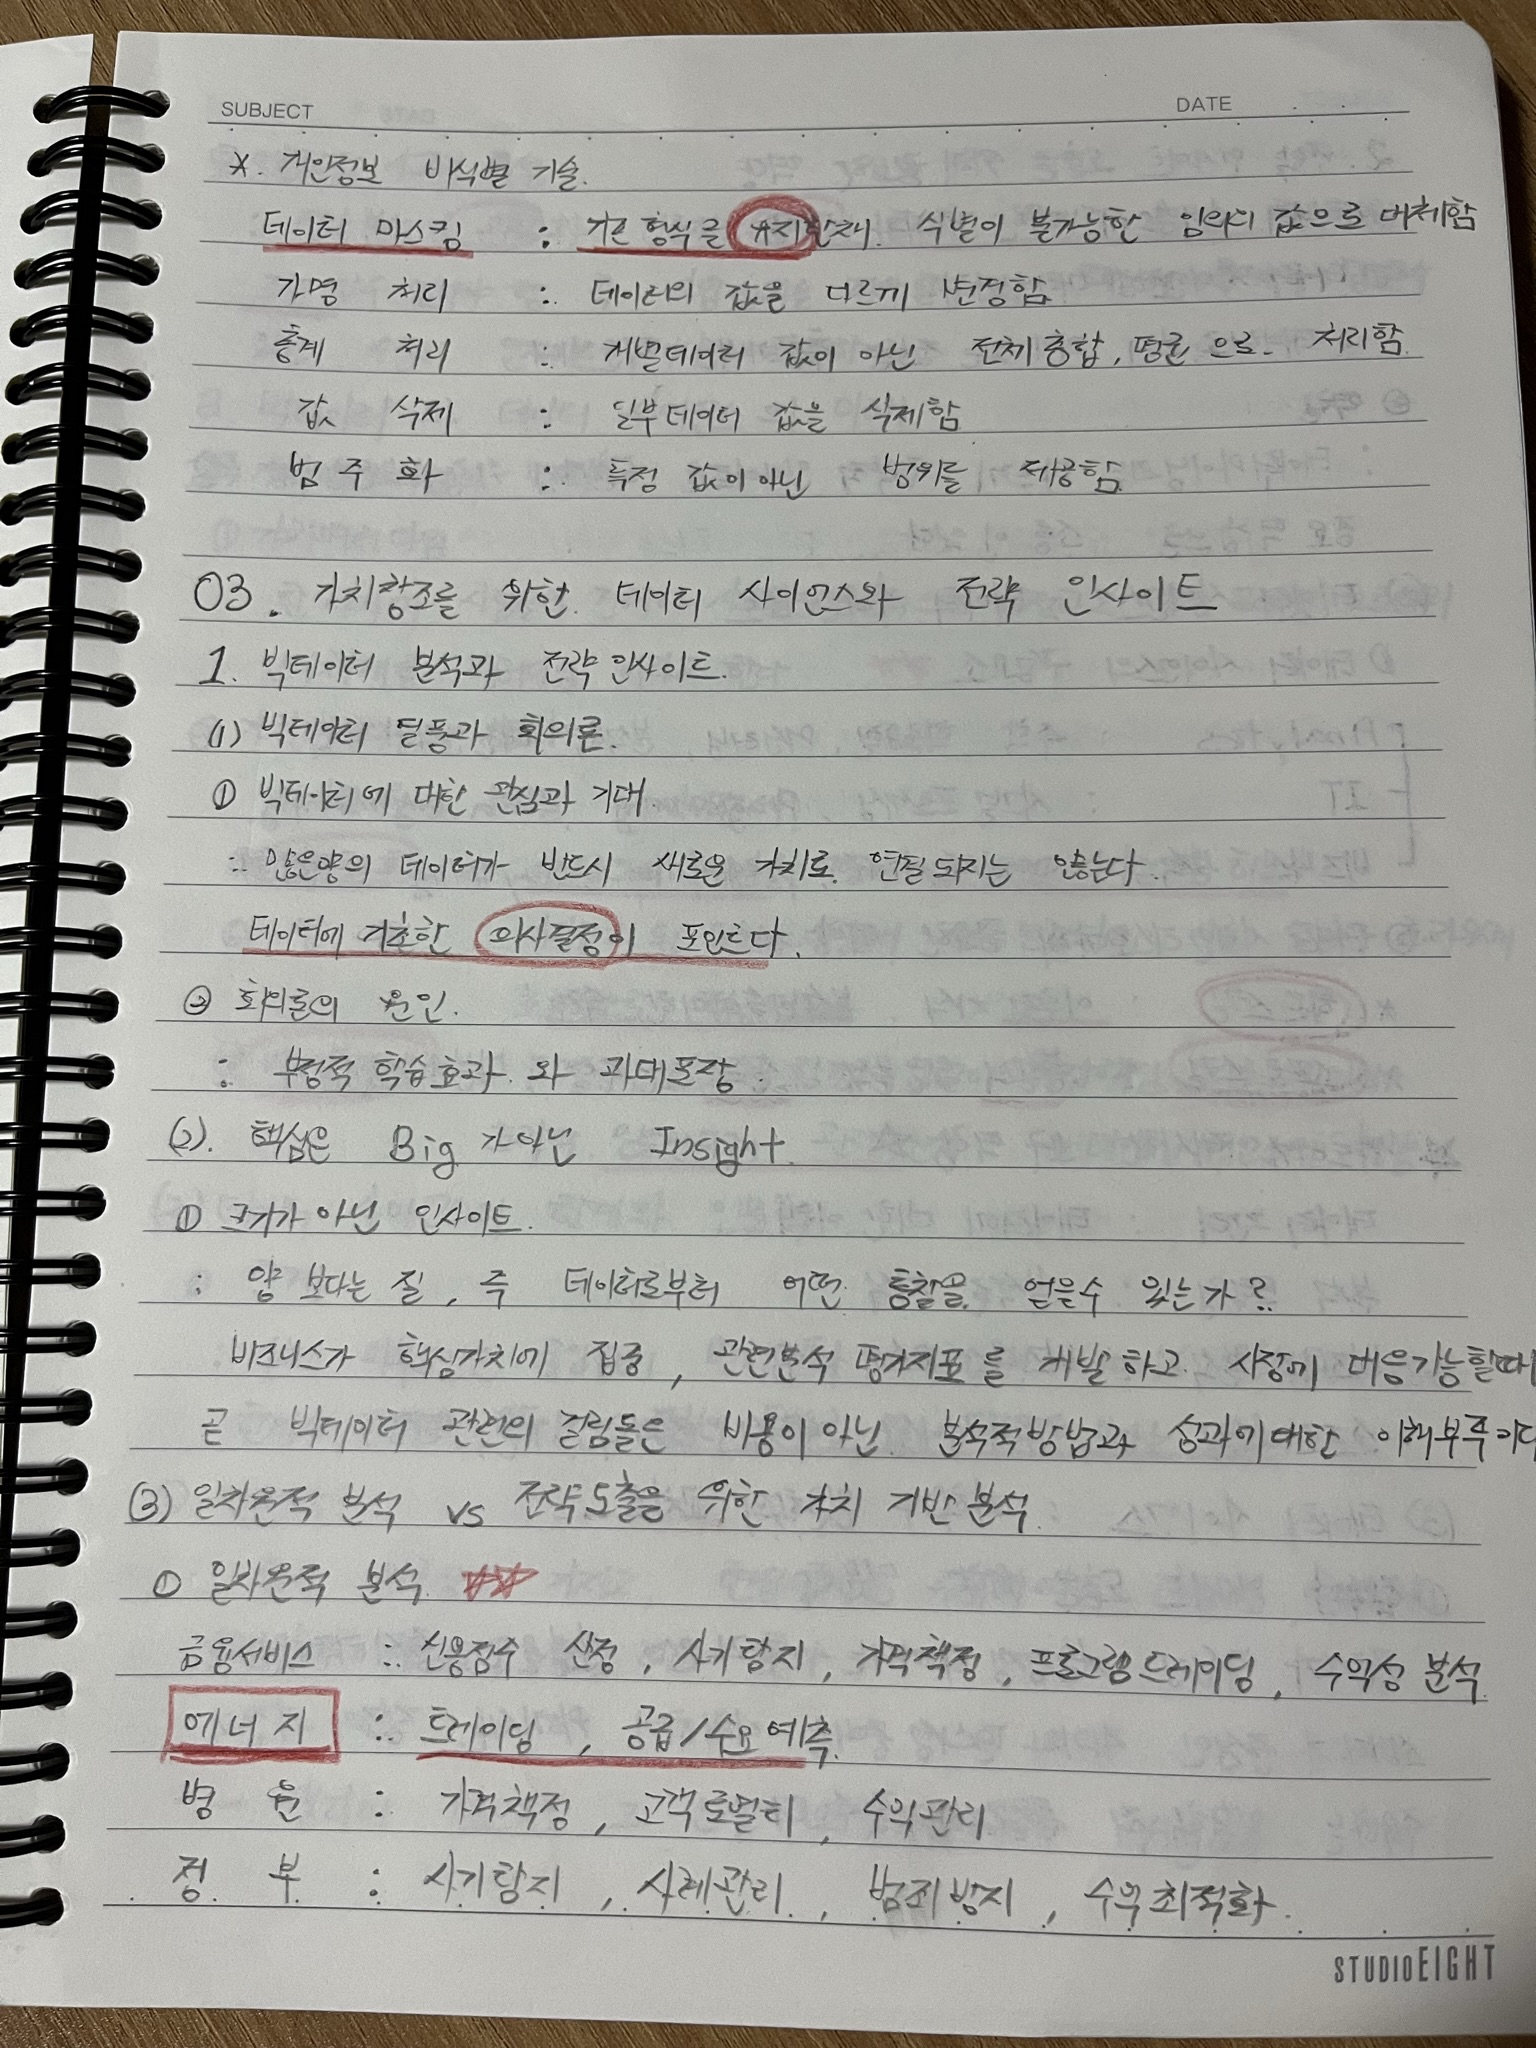 SUBJECT DATE
*. 개인정보 비식별 기술.
데이터 마스킹 : 기존 형식을 유지한채. 식별이 불가능한 임의의 값으로 대체함
가명 처리 : 데이터의 값을 다르게 변경함
총계 처리 : 개별데이터 값이 아닌 전체총합, 평균으로 처리함.
값 삭제 : 일부데이터 값을 삭제함
범주화 : 특정 값이 아닌 범위를 제공함.
03. 가치창조를 위한 데이터 사이언스와 전략 인사이트
1. 빅데이터 분석과 전략인사이트.
(1) 빅데이터 열풍과 회의론.
① 빅데이터에 대한 관심과 기대.
: 많은양의 데이터가 반드시 새로운 가치로 연결되지는 않는다.
데이터에 기초한 의사결정이 포인트다.
② 회의론의 원인.
: 부정적 학습효과 와 과대포장.
(2). 핵심은 Big 가 아닌 Insight.
① 크기가 아닌 인사이트.
: 양 보다는 질, 즉 데이터로부터 어떤 통찰을 얻을수 있는가?
비즈니스가 핵심가치에 집중, 관련분석 평가지표를 개발하고 시장에 대응가능할때
곧 빅데이터 관련의 걸림돌은 비용이 아닌 분석적방법과 성과에대한 이해부족이다
(3) 일차원적 분석 vs 전략도출을 위한 가치 기반분석.
① 일차원적 분석.
금융서비스 : 신용점수 산정, 사기탐지, 가격책정, 프로그램트레이딩, 수익성 분석.
에너지 : 트레이딩, 공급/수요예측.
병원 : 가격책정, 고객로열티, 수익관리
정부 : 사기탐지, 사례관리, 범죄방지, 수익최적화.
STUDIOEIGHT